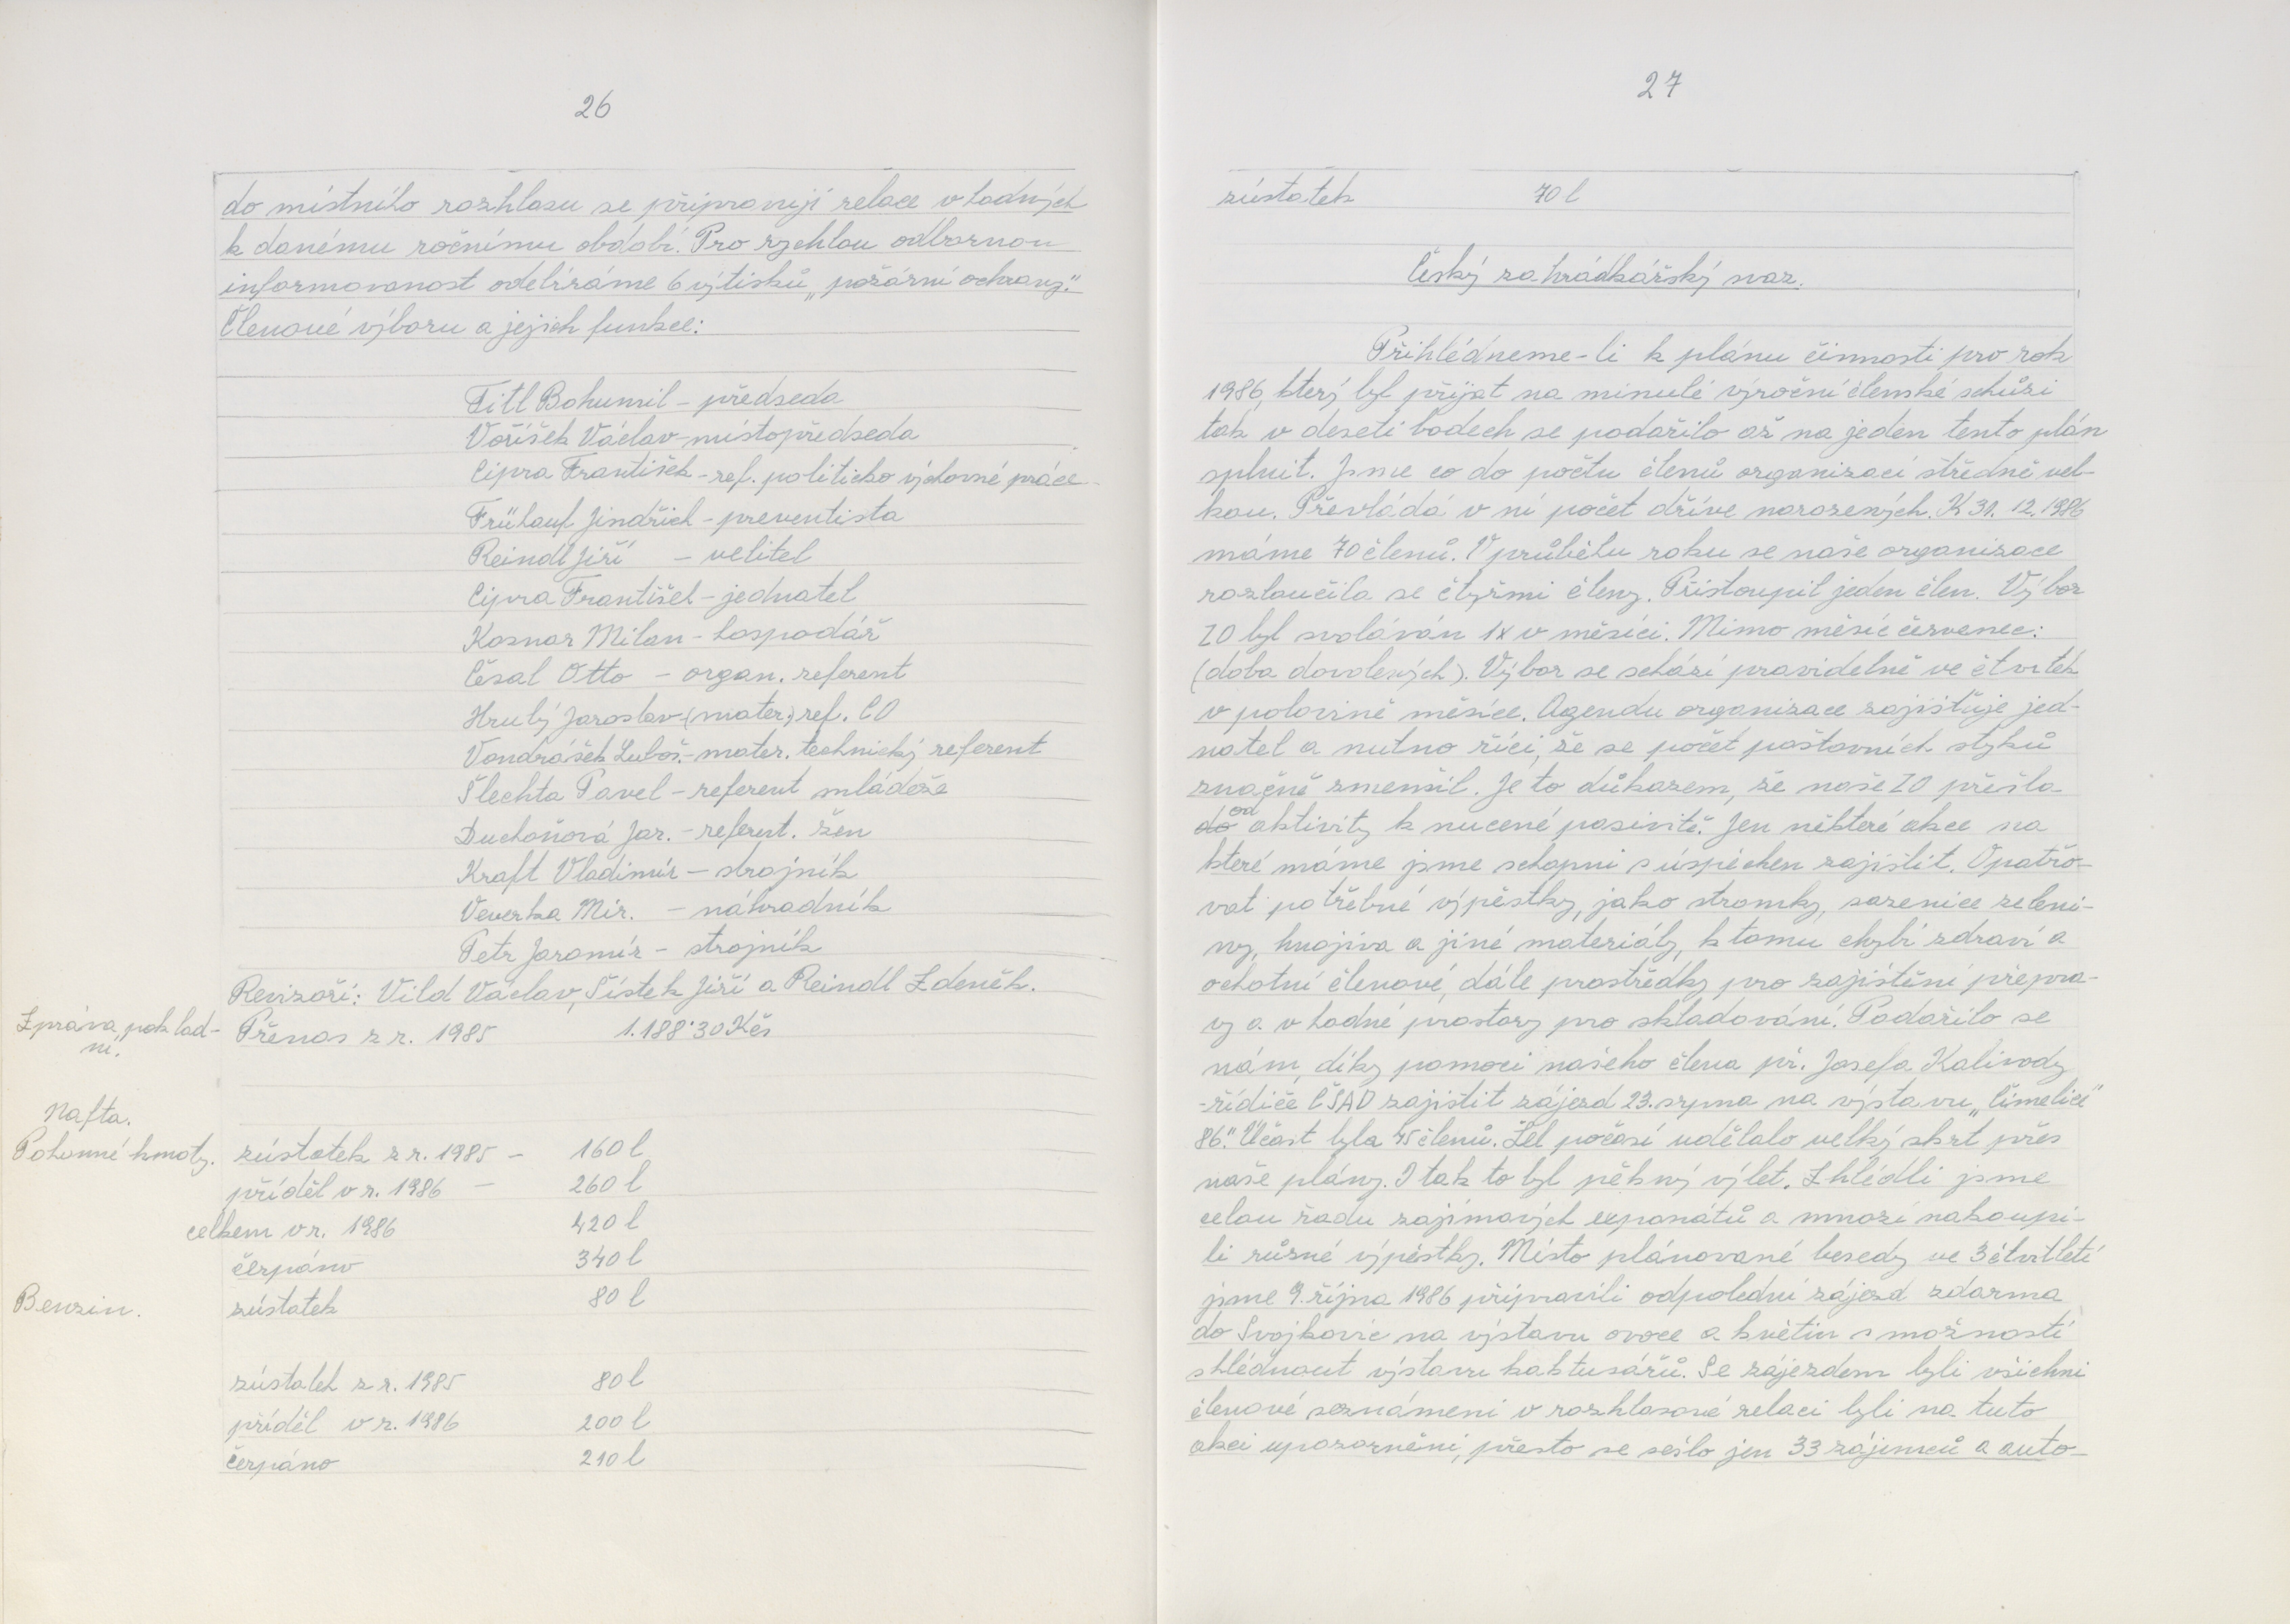 26
do místního rozhlasu se připravují relace vhodných
k danému ročnímu období. Pro rychlou odbornou
informovanost odebíráme 6 výtisků „požární ochrany."
Členové výboru a jejich funkce:
Titl Bohumil - předseda
Voříšek Václav - místopředseda
Cipra František - ref. politicko výchovné práce
Frühauf Jindřich - preventista
Reindl Jiří - velitel
Cipra František - jednatel
Kosnar Milan - hospodář
Česal Otto - organ. referent
Hrubý Jaroslav (mater.) ref. CO
Vondrášek Luboš - mater. technický referent
Šlechta Pavel - referent mládeže
Duchoňová Jar. - referent. žen
Kraft Vladimír - strojník
Veverka Mir. - náhradník
Petr Jaromír - strojník
Revizoři: Vild Václav, Šístek Jiří a Reindl Zdeněk.
Zpráva poklad-
ní.
Přenos z r. 1985 1.188·30 Kčs
Nafta.
Pohonné hmoty. zústatek z r. 1985 - 160 l
příděl v r. 1986 - 260 l
celkem v r. 1986 420 l
čerpáno 340 l
Benzin. zústatek 80 l
zústatek z r. 1985 80 l
příděl v r. 1986 200 l
čerpáno 210 l
27
zústatek 70 l
Český zahrádkářský svaz.
Přihlédneme-li k plánu činnosti pro rok
1986, který byl přijat na minulé výroční členské schůzi
tak v deseti bodech se podařilo až na jeden tento plán
splnit. Jsme co do počtu členů organizací středně vel-
kou. Převládá v ní počet dříve narozených. K 31. 12. 1986
máme 70 členů. V průběhu roku se naše organizace
rozloučila se čtyřmi členy. Přistoupil jeden člen. Výbor
ZO byl svoláván 1x v měsíci. Mimo měsíc červenec:
(doba dovolených). Výbor se schází pravidelně ve čtvrtek
v polovině měsíce. Agendu organizace zajišťuje jed-
natel a nutno říci, že se počet poštovních styků
značně zmenšil. Je to důkazem, že naše ZO přešla
do od aktivity k nucené pasivitě. Jen některé akce na
které máme jsme schopni s úspěchem zajistit. Opatřo-
vat potřebné výpěstky, jako stromky, sazenice zeleni-
ny, hnojiva a jiné materiály, k tomu chybí zdraví a
ochotní členové, dále prostředky pro zajištění přepra-
vy a vhodné prostory pro skladování. Podařilo se
nám, díky pomoci našeho člena př. Josefa Kalivody
-řidiče ČSAD zajistit zájezd 23. srpna na výstavu „Čimelice
86." Účast byla 45 členů. Žel počasí udělalo velký škrt přes
naše plány. I tak to byl pěkný výlet. Zhlédli jsme
celou řadu zajímavých exponátů a mnozí nakoupi-
li různé výpěstky. Místo plánované besedy ve 3 čtvrtletí
jsme 9. října 1986 připravili odpolední zájezd zdarma
do Svojkovic na výstavu ovoce a květin s možností
shlédnout výstavu kaktusářů. Se zájezdem byli všichni
členové seznámeni v rozhlasové relaci byli na tuto
akci upozorněni, přesto se sešlo jen 33 zájemců a auto-